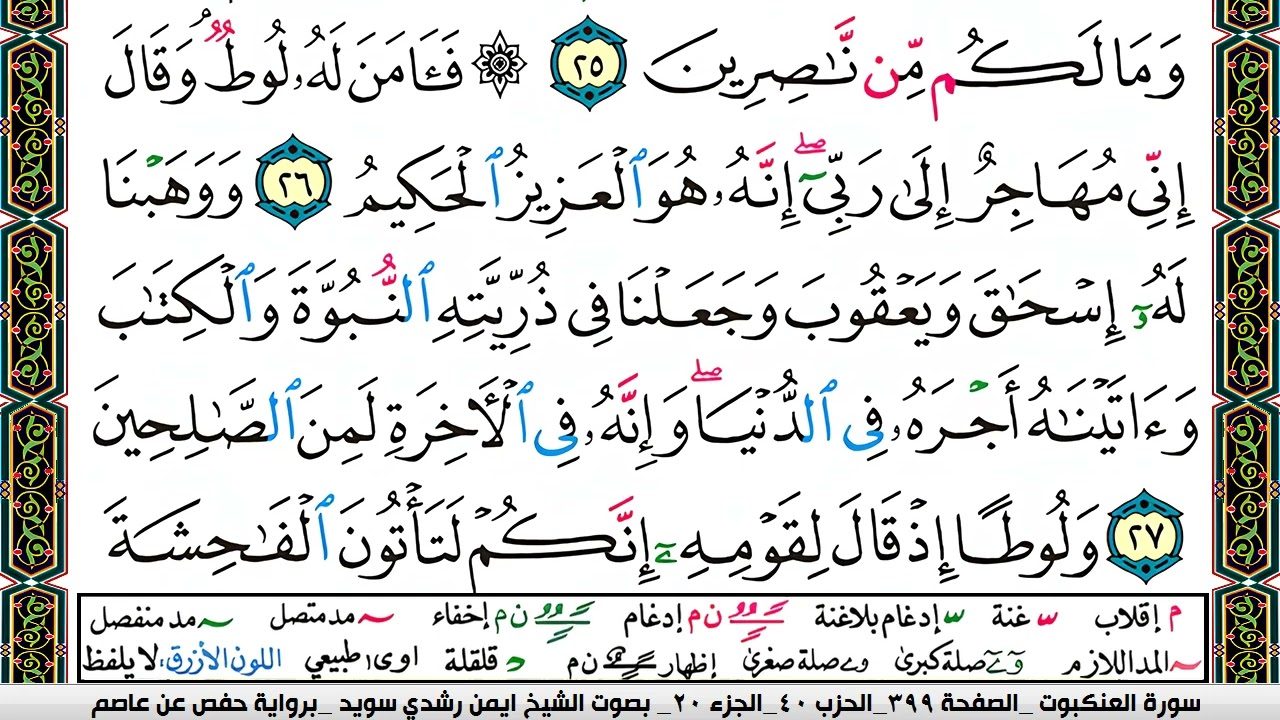 وَمَا لَكُم مِّن نَّـٰصِرِينَ ٢٥ ۞ فَـَٔامَنَ لَهُۥ لُوطٌ وَقَالَ
إِنِّى مُهَاجِرٌ إِلَىٰ رَبِّىٓ ۖ إِنَّهُۥ هُوَ ٱلْعَزِيزُ ٱلْحَكِيمُ ٢٦ وَوَهَبْنَا
لَهُۥٓ إِسْحَـٰقَ وَيَعْقُوبَ وَجَعَلْنَا فِى ذُرِّيَّتِهِ ٱلنُّبُوَّةَ وَٱلْكِتَـٰبَ
وَءَاتَيْنَـٰهُ أَجْرَهُۥ فِى ٱلدُّنْيَا ۖ وَإِنَّهُۥ فِى ٱلْـَٔاخِرَةِ لَمِنَ ٱلصَّـٰلِحِينَ
٢٧ وَلُوطًا إِذْ قَالَ لِقَوْمِهِۦٓ إِنَّكُمْ لَتَأْتُونَ ٱلْفَـٰحِشَةَ
م إقلاب س غنة س إدغام بلاغنة ن م إدغام ن م إخفاء ~ مد متصل ~ مد منفصل
~ المد اللازم وۤ ےۤ صلة كبرى و ے صلة صغرى إظهار ن م د قلقلة اوى طبيعي اللون الأزرق، لا يلفظ
سورة العنكبوت _الصفحة ٣٩٩_الحزب ٤٠_الجزء ٢٠_ بصوت الشيخ ايمن رشدي سويد _برواية حفص عن عاصم